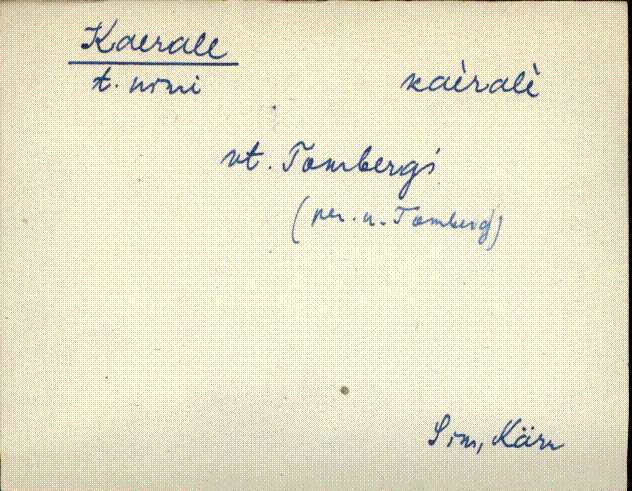 Kaerale
t. nimi kaèralè
vt. Tombergi
(per. n. Tomberg)
Sim, Kärn